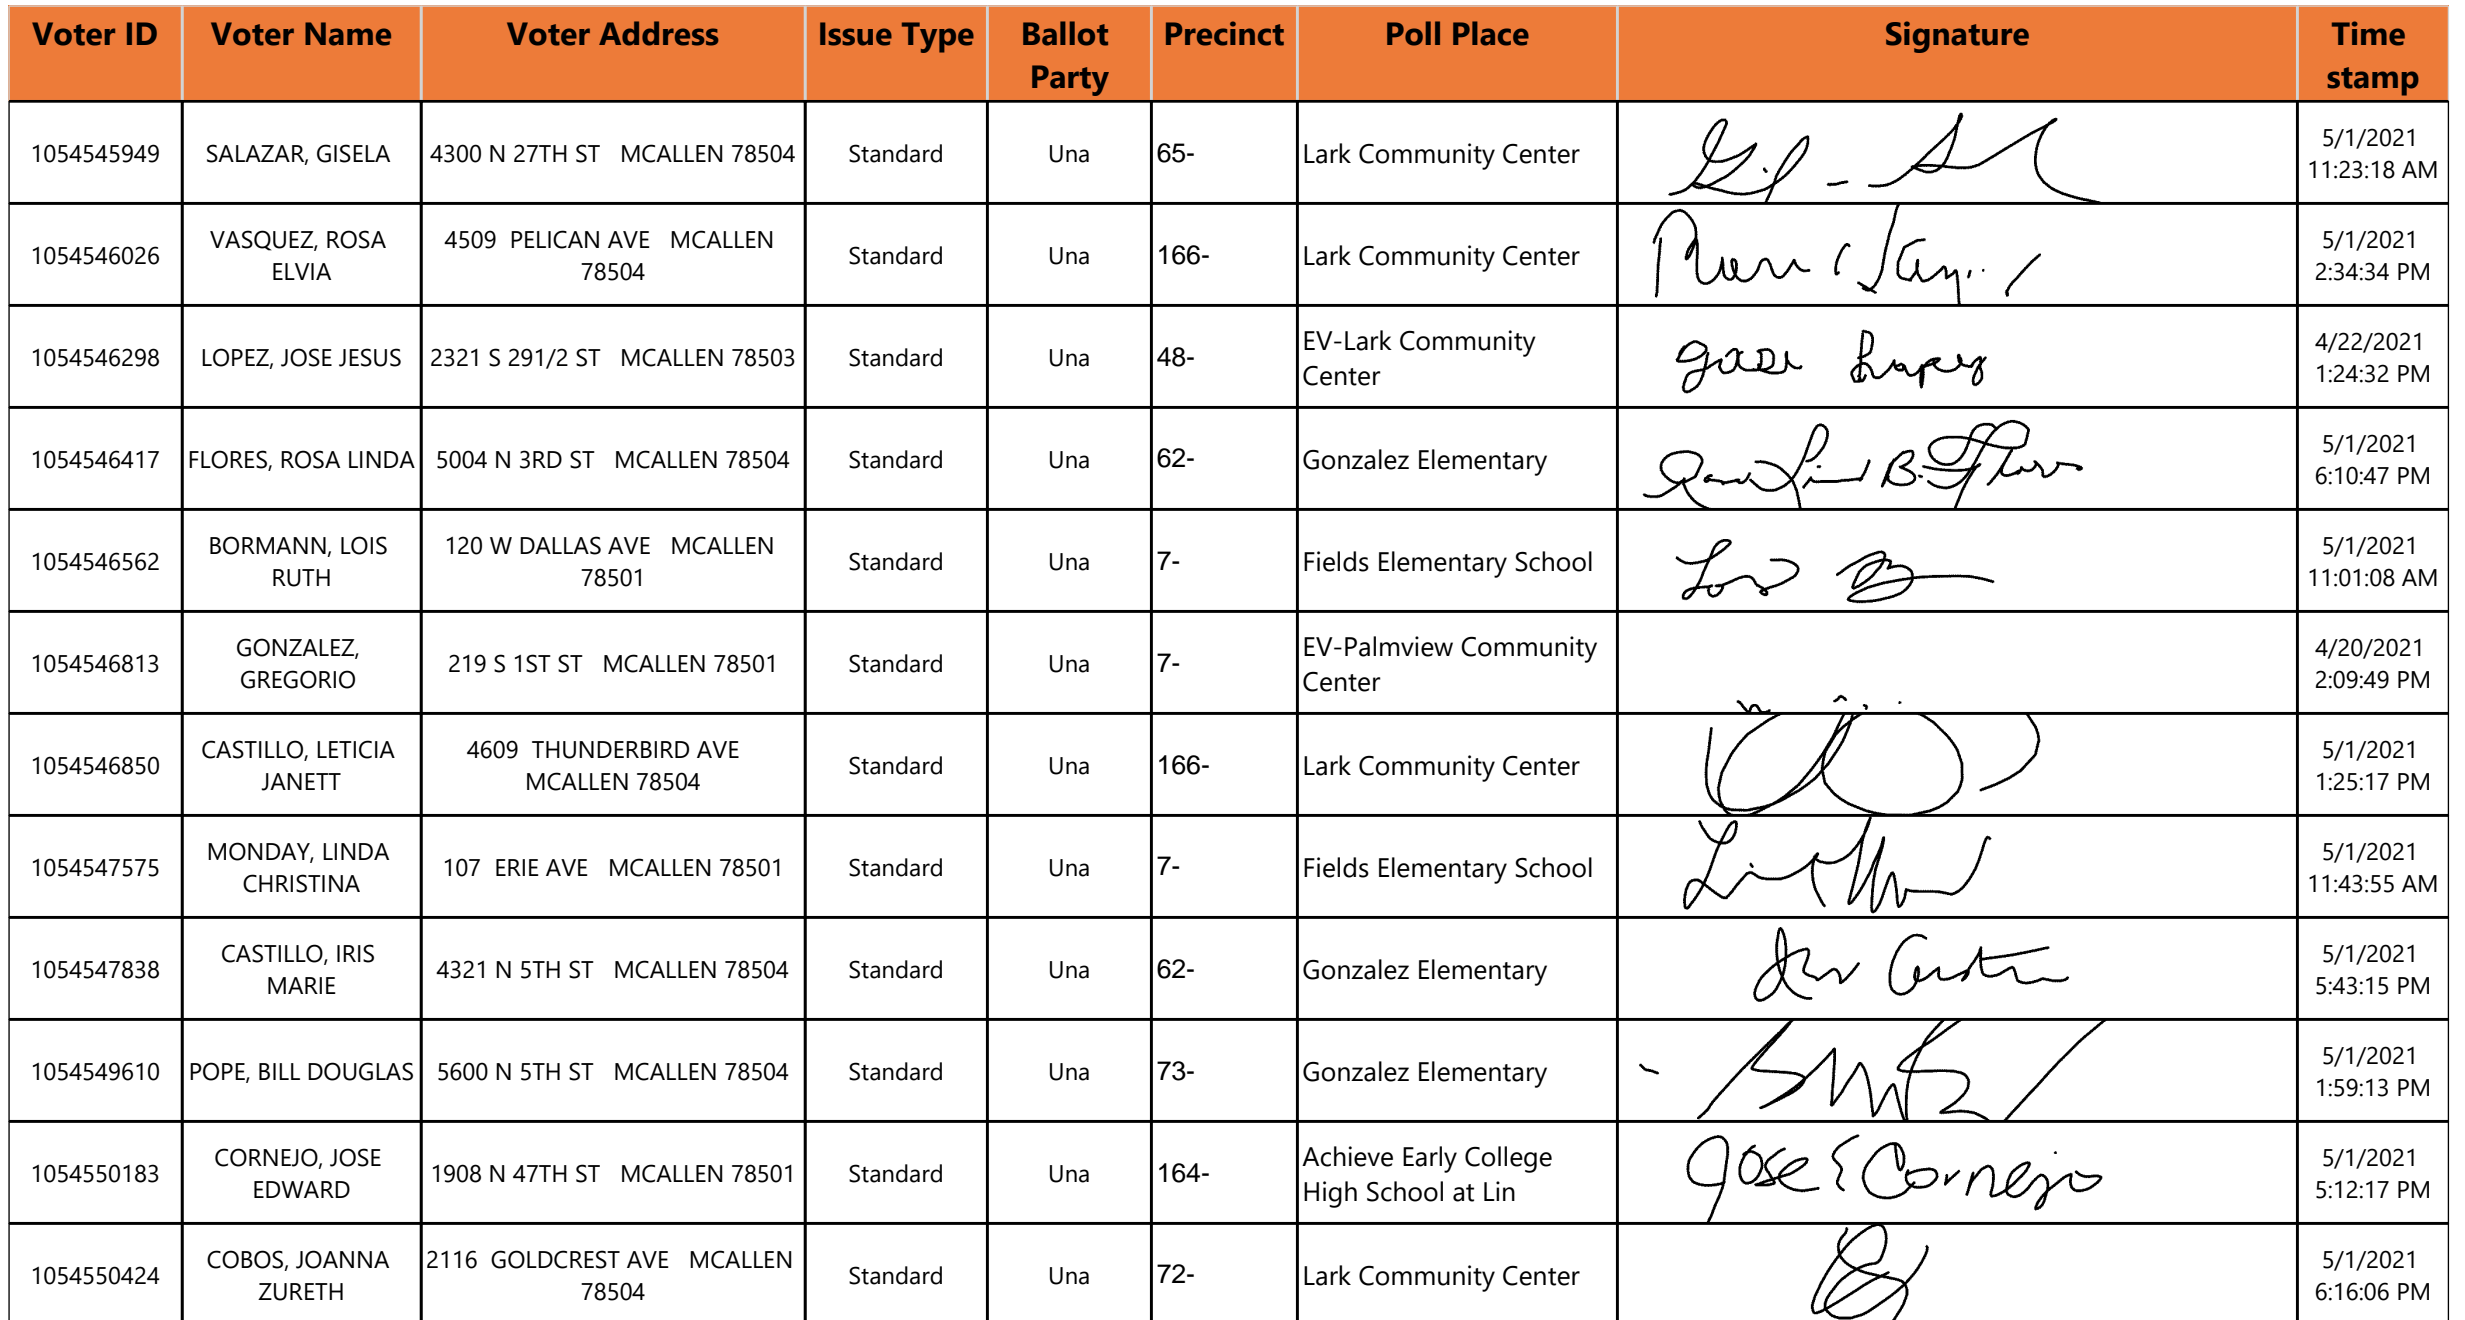 Voter ID Voter Name Voter Address Issue Type Ballot Party Precinct Poll Place Signature Time stamp
1054545949 SALAZAR, GISELA 4300 N 27TH ST MCALLEN 78504 Standard Una 65- Lark Community Center 5/1/2021 11:23:18 AM
1054546026 VASQUEZ, ROSA ELVIA 4509 PELICAN AVE MCALLEN 78504 Standard Una 166- Lark Community Center 5/1/2021 2:34:34 PM
1054546298 LOPEZ, JOSE JESUS 2321 S 291/2 ST MCALLEN 78503 Standard Una 48- EV-Lark Community Center Jose Lopez 4/22/2021 1:24:32 PM
1054546417 FLORES, ROSA LINDA 5004 N 3RD ST MCALLEN 78504 Standard Una 62- Gonzalez Elementary Rosa Linda B. Flores 5/1/2021 6:10:47 PM
1054546562 BORMANN, LOIS RUTH 120 W DALLAS AVE MCALLEN 78501 Standard Una 7- Fields Elementary School 5/1/2021 11:01:08 AM
1054546813 GONZALEZ, GREGORIO 219 S 1ST ST MCALLEN 78501 Standard Una 7- EV-Palmview Community Center 4/20/2021 2:09:49 PM
1054546850 CASTILLO, LETICIA JANETT 4609 THUNDERBIRD AVE MCALLEN 78504 Standard Una 166- Lark Community Center 5/1/2021 1:25:17 PM
1054547575 MONDAY, LINDA CHRISTINA 107 ERIE AVE MCALLEN 78501 Standard Una 7- Fields Elementary School 5/1/2021 11:43:55 AM
1054547838 CASTILLO, IRIS MARIE 4321 N 5TH ST MCALLEN 78504 Standard Una 62- Gonzalez Elementary 5/1/2021 5:43:15 PM
1054549610 POPE, BILL DOUGLAS 5600 N 5TH ST MCALLEN 78504 Standard Una 73- Gonzalez Elementary 5/1/2021 1:59:13 PM
1054550183 CORNEJO, JOSE EDWARD 1908 N 47TH ST MCALLEN 78501 Standard Una 164- Achieve Early College High School at Lin Jose E Cornejo 5/1/2021 5:12:17 PM
1054550424 COBOS, JOANNA ZURETH 2116 GOLDCREST AVE MCALLEN 78504 Standard Una 72- Lark Community Center 5/1/2021 6:16:06 PM